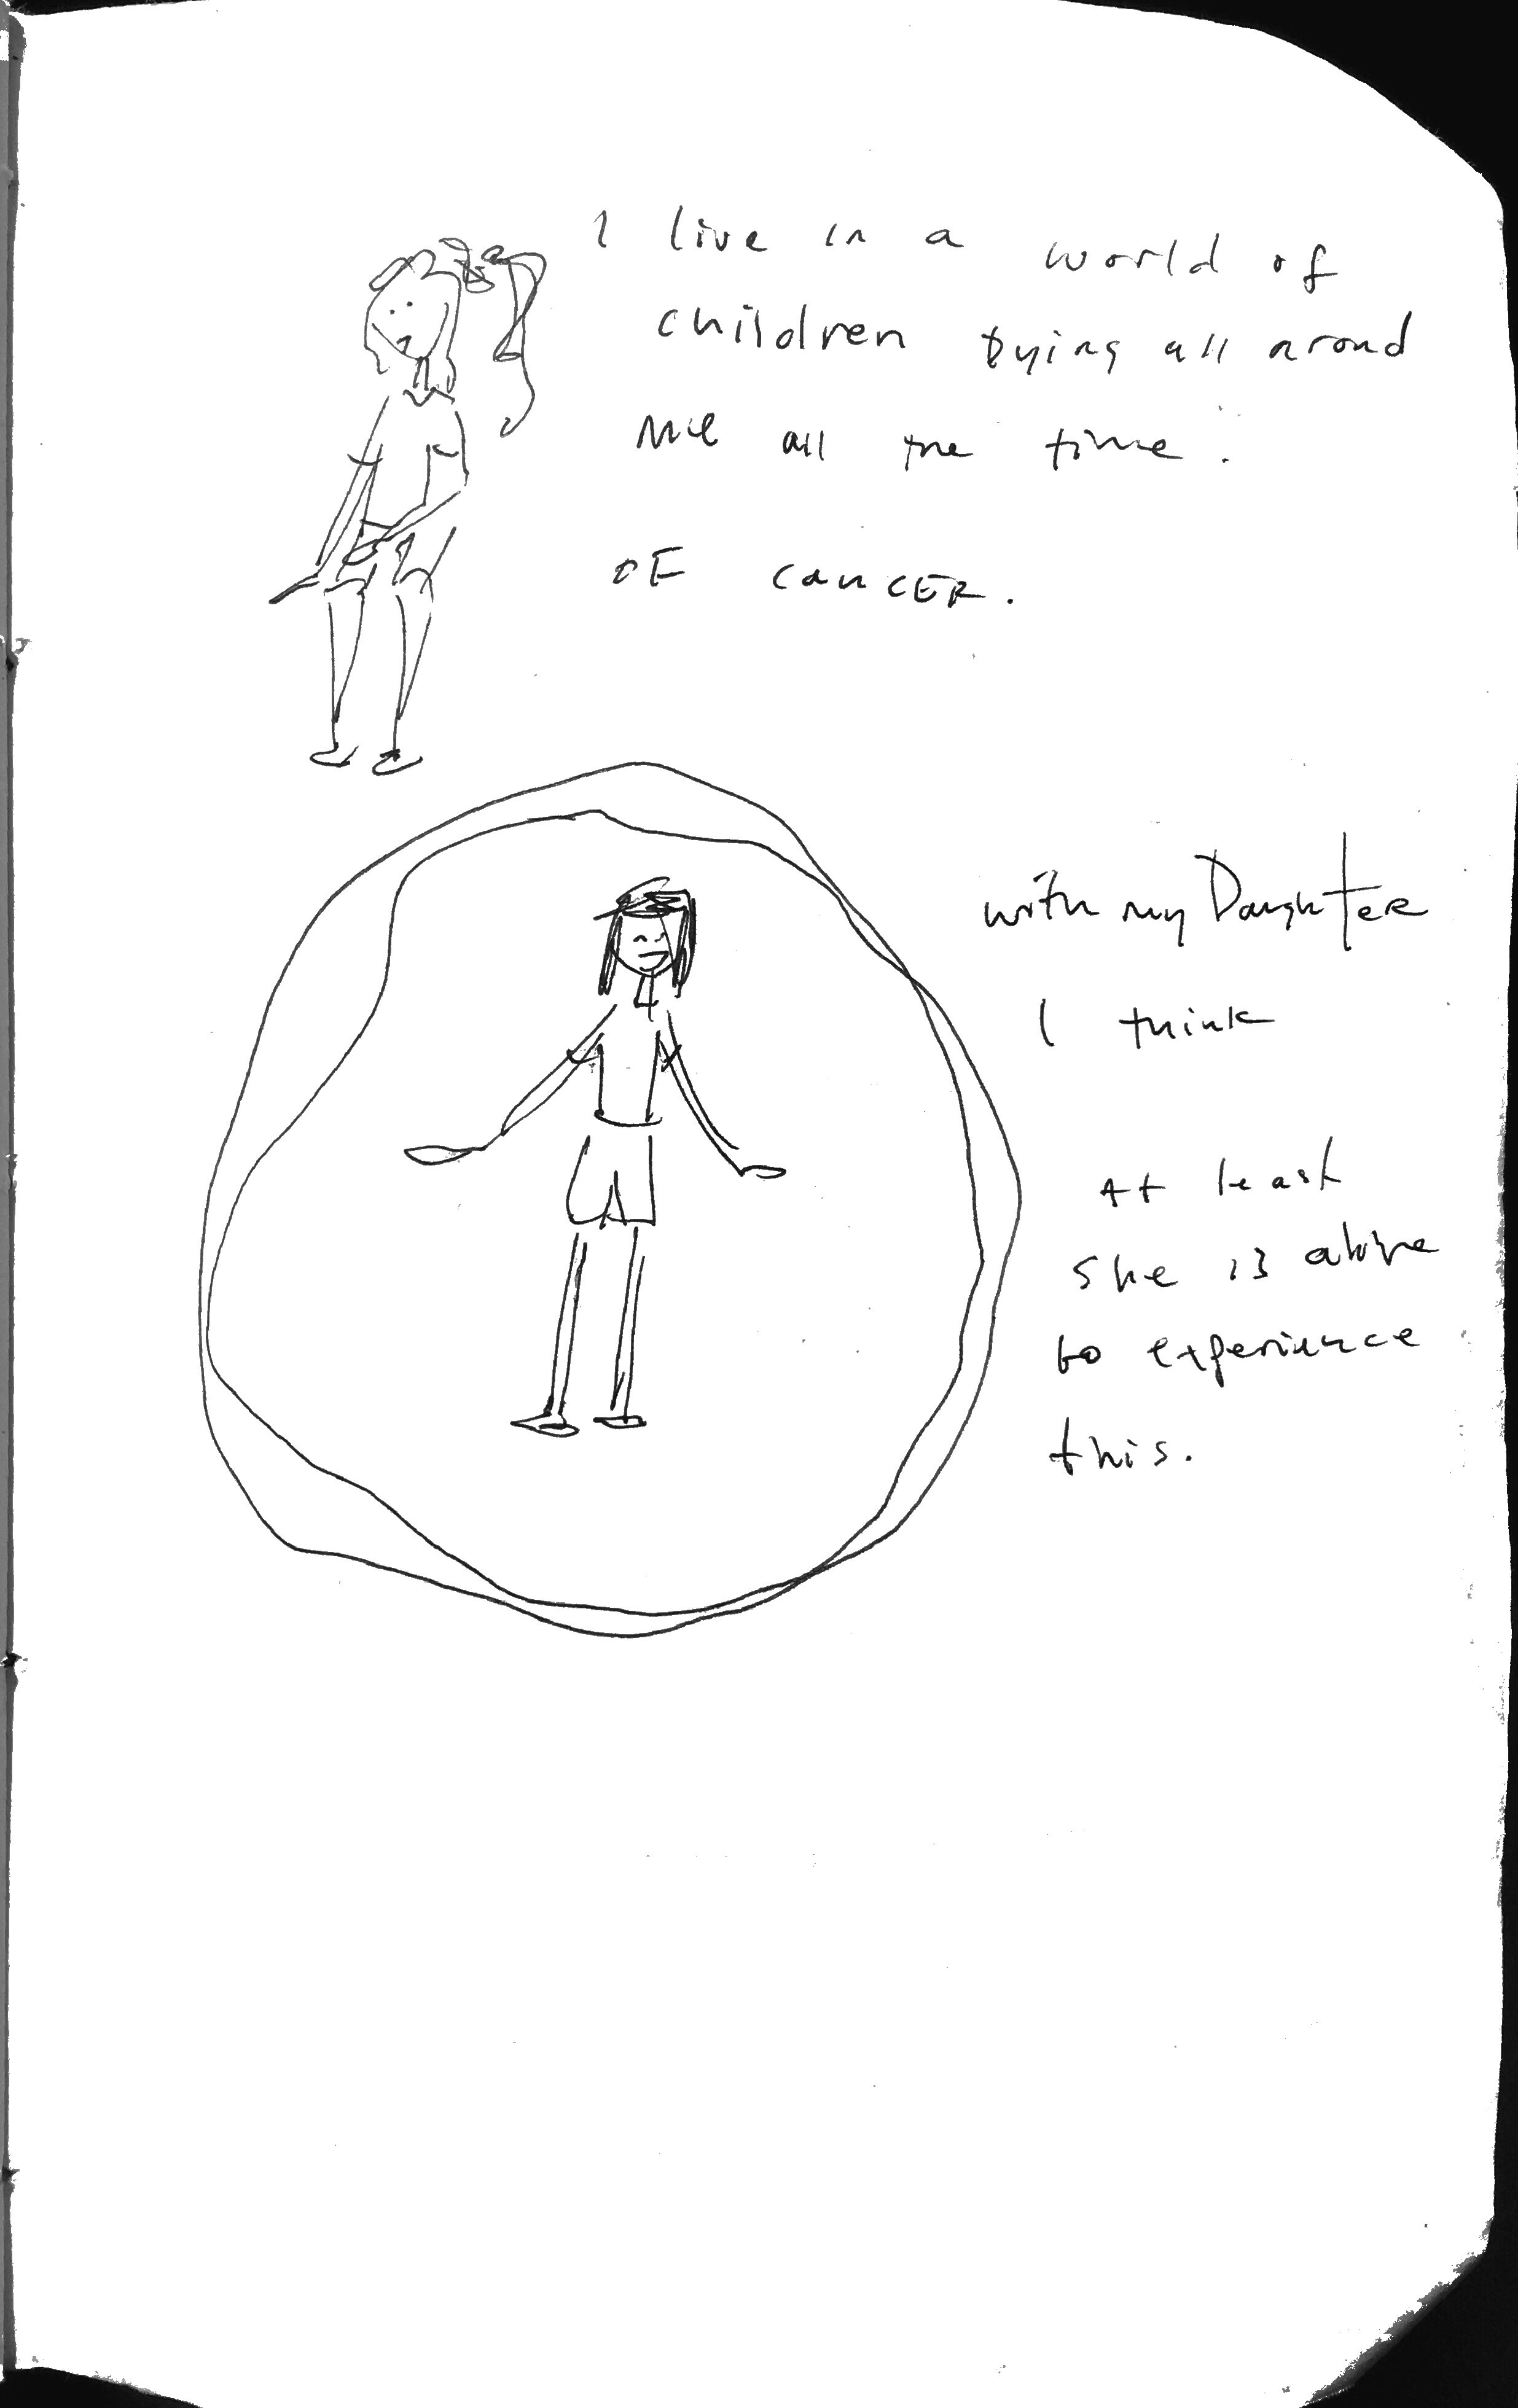 I live in a world of
children dying all arond
me all the time.
OF CANCER.
with my Daughter
I think
At least
she is alive
to experience
this.